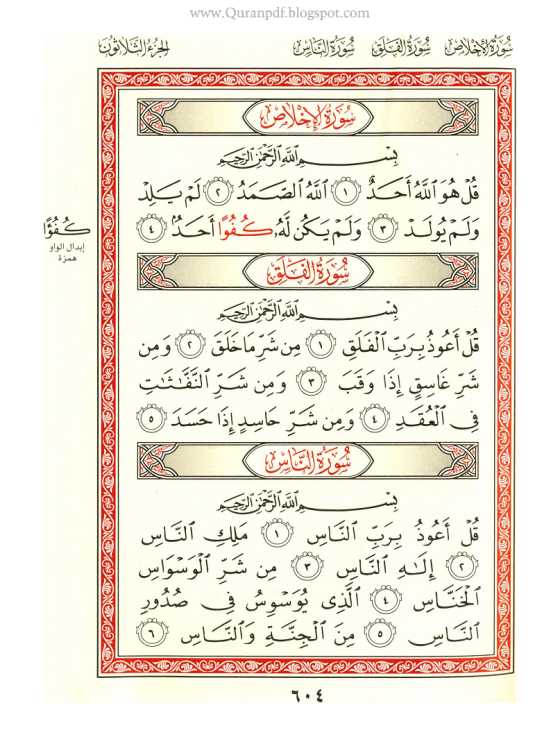 www.Quranpdf.blogspot.com
سُورَةُ الإِخْلَاصِ سُورَةُ الفَلَقِ سُورَةُ النَّاسِ الجُزْءُ الثَّلَاثُونَ
سُورَةُ الإِخْلَاصِ
بِسْمِ ٱللَّهِ ٱلرَّحْمَٰنِ ٱلرَّحِيمِ
قُلْ هُوَ ٱللَّهُ أَحَدٌ ١ ٱللَّهُ ٱلصَّمَدُ ٢ لَمْ يَلِدْ
وَلَمْ يُولَدْ ٣ وَلَمْ يَكُن لَّهُۥ كُفُوًا أَحَدٌۢ ٤
كُفُؤًا
إبدال الواو
همزة
سُورَةُ الفَلَقِ
بِسْمِ ٱللَّهِ ٱلرَّحْمَٰنِ ٱلرَّحِيمِ
قُلْ أَعُوذُ بِرَبِّ ٱلْفَلَقِ ١ مِن شَرِّ مَا خَلَقَ ٢ وَمِن
شَرِّ غَاسِقٍ إِذَا وَقَبَ ٣ وَمِن شَرِّ ٱلنَّفَّٰثَٰتِ
فِى ٱلْعُقَدِ ٤ وَمِن شَرِّ حَاسِدٍ إِذَا حَسَدَ ٥
سُورَةُ النَّاسِ
بِسْمِ ٱللَّهِ ٱلرَّحْمَٰنِ ٱلرَّحِيمِ
قُلْ أَعُوذُ بِرَبِّ ٱلنَّاسِ ١ مَلِكِ ٱلنَّاسِ
٢ إِلَٰهِ ٱلنَّاسِ ٣ مِن شَرِّ ٱلْوَسْوَاسِ
ٱلْخَنَّاسِ ٤ ٱلَّذِى يُوَسْوِسُ فِى صُدُورِ
ٱلنَّاسِ ٥ مِنَ ٱلْجِنَّةِ وَٱلنَّاسِ ٦
٦٠٤